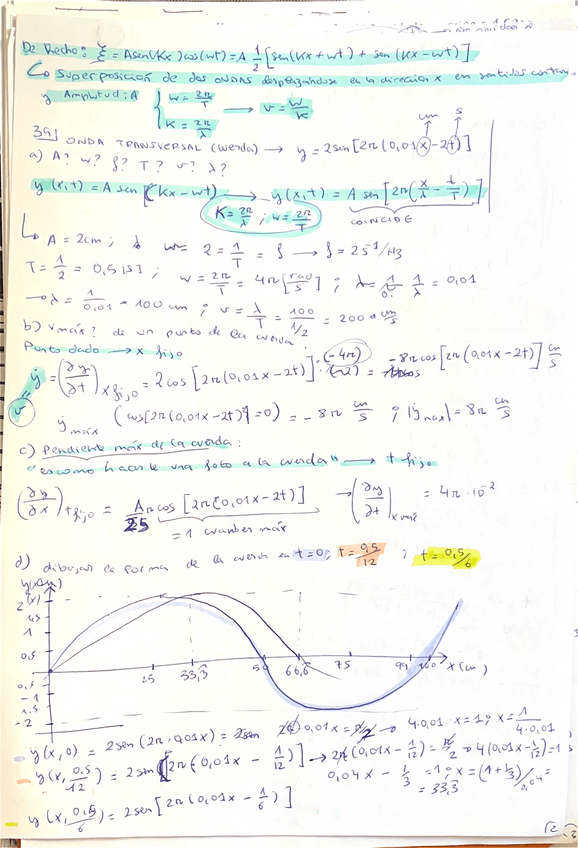 De hecho: ξ = A sen(Kx) cos(wt) = A 1/2 [sen(Kx+wt) + sen(Kx-wt)]
↳ superposición de dos ondas desplazándose en la dirección x en sentidos
y Amplitud: A { w = 2π/T → v = w/K
K = 2π/λ
cm s
39) ONDA TRANSVERSAL (cuerda) → y = 2sen[2π(0,01x-2t)]
a) A? w? f? T? v? λ?
y(x,t) = A sen[Kx-wt) → y(x,t) = A sen[2π(x/λ - t/T)]
K = 2π/λ ; w = 2π/T COINCIDE
↳ A = 2cm; w 2 = 1/T = f → f = 2s⁻¹/Hz
T = 1/2 = 0,5 [s]; w = 2π/T = 4π [rad/s]; 1/λ = 0,01
→ λ = 1/0,01 = 100 cm; v = λ/T = 100/1/2 = 200 cm/s
b) vmáx? de un punto de la cuerda:
Punto dado → x fijo
v = ẏ = (∂y/∂t) x fijo = 2cos[2π(0,01x-2t)]·(-4π) (-2) = -8π cos[2π(0,01x-2t)] cm/s
ẏmáx (cos[2π(0,01x-2t)]=0) = -8π cm/s ; |ẏmax| = 8π cm/s
c) Pendiente máx de la cuerda:
"es como hacerle una foto a la cuerda" → t fijo
(∂y/∂x) t fijo = Aπ/25 cos[2π(0,01x-2t)] → (∂y/∂t) x máx = 4π·10⁻²
= 1 cuando es máx
d) dibujar la forma de la cuerda en t=0; t = 0,5/12 ; t = 0,5/6
y(cm)
2
1,5
1
0,5
0,5
-1
1,5
-2
25 33,3 50 66,6 75 99 100 x(cm)
y(x,0) = 2sen(2π·0,01x) = 2sen 2π 0,01x = π/2 → 4·0,01·x = 1; x = 1/4·0,01
y(x, 0,5/12) = 2sen[2π(0,01x - 1/12)] → 2π(0,01x - 1/12) = π/2 → 4(0,01x - 1/12) = 1
0,04x - 1/3 = 1; x = (1+1/3)/0,04 =
= 33,3
y(x, 0,5/6) = 2sen[2π(0,01x - 1/6)]